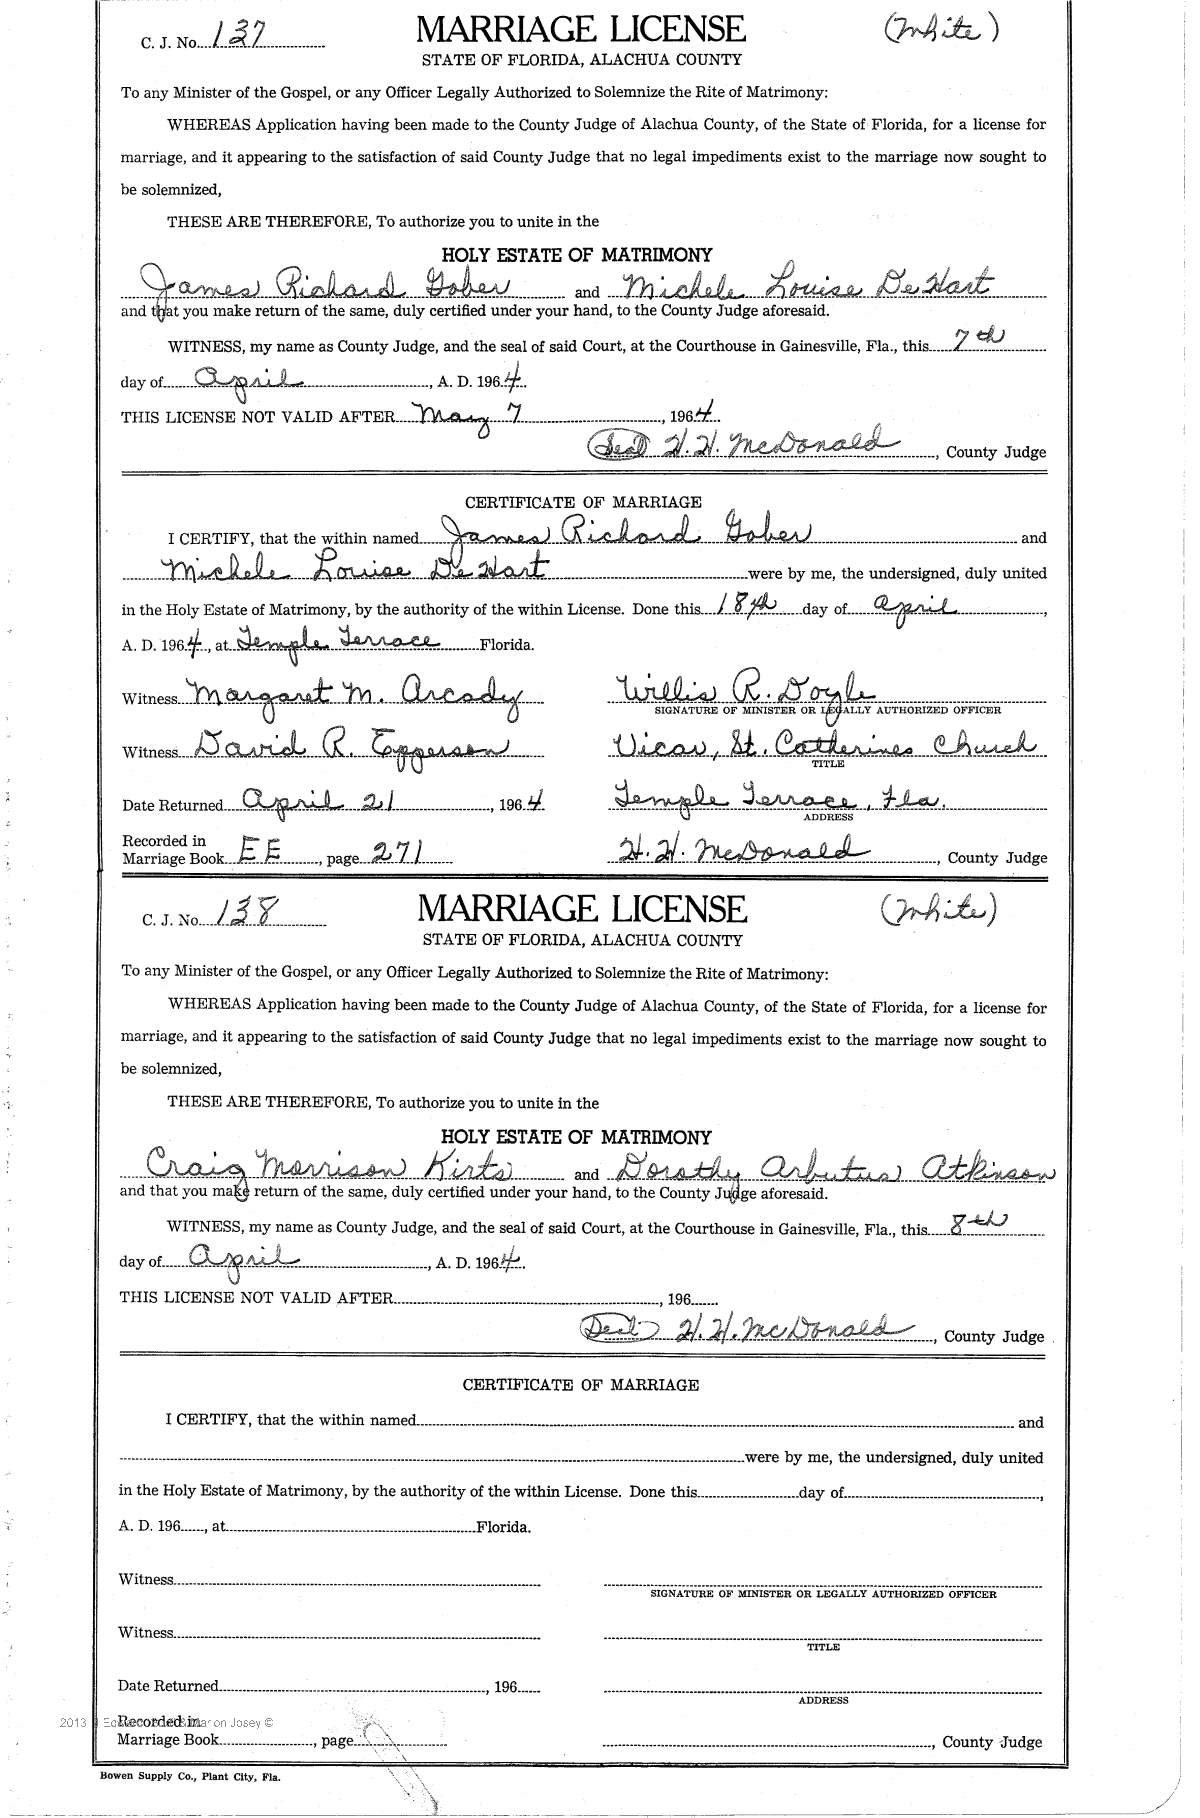 C. J. No. 137 MARRIAGE LICENSE (White)
STATE OF FLORIDA, ALACHUA COUNTY
To any Minister of the Gospel, or any Officer Legally Authorized to Solemnize the Rite of Matrimony:
WHEREAS Application having been made to the County Judge of Alachua County, of the State of Florida, for a license for
marriage, and it appearing to the satisfaction of said County Judge that no legal impediments exist to the marriage now sought to
be solemnized,
THESE ARE THEREFORE, To authorize you to unite in the
HOLY ESTATE OF MATRIMONY
James Richard Gober and Michele Louise DeHart
and that you make return of the same, duly certified under your hand, to the County Judge aforesaid.
WITNESS, my name as County Judge, and the seal of said Court, at the Courthouse in Gainesville, Fla., this 7th
day of April, A. D. 1964.
THIS LICENSE NOT VALID AFTER May 7, 1964
(Seal) H. H. McDonald, County Judge
CERTIFICATE OF MARRIAGE
I CERTIFY, that the within named James Richard Gober and
Michele Louise DeHart were by me, the undersigned, duly united
in the Holy Estate of Matrimony, by the authority of the within License. Done this 18th day of April,
A. D. 1964, at Temple Terrace Florida.
Witness Margaret M. Arcady Willis R. Doyle
SIGNATURE OF MINISTER OR LEGALLY AUTHORIZED OFFICER
Witness David R. Epperson Vicar, St. Catherines Church
TITLE
Date Returned April 21, 1964 Temple Terrace, Fla.
ADDRESS
Recorded in
Marriage Book EE, page 271 H. H. McDonald, County Judge
C. J. No. 138 MARRIAGE LICENSE (White)
STATE OF FLORIDA, ALACHUA COUNTY
To any Minister of the Gospel, or any Officer Legally Authorized to Solemnize the Rite of Matrimony:
WHEREAS Application having been made to the County Judge of Alachua County, of the State of Florida, for a license for
marriage, and it appearing to the satisfaction of said County Judge that no legal impediments exist to the marriage now sought to
be solemnized,
THESE ARE THEREFORE, To authorize you to unite in the
HOLY ESTATE OF MATRIMONY
Craig Morrison Kirts and Dorothy Arbutus Atkinson
and that you make return of the same, duly certified under your hand, to the County Judge aforesaid.
WITNESS, my name as County Judge, and the seal of said Court, at the Courthouse in Gainesville, Fla., this 8th
day of April, A. D. 1964.
THIS LICENSE NOT VALID AFTER, 196
(Seal) H. H. McDonald, County Judge
CERTIFICATE OF MARRIAGE
I CERTIFY, that the within named and
were by me, the undersigned, duly united
in the Holy Estate of Matrimony, by the authority of the within License. Done this day of,
A. D. 196, at Florida.
Witness
SIGNATURE OF MINISTER OR LEGALLY AUTHORIZED OFFICER
Witness
TITLE
Date Returned, 196
ADDRESS
2013 Josey ©
Recorded in
Marriage Book, page, County Judge
Bowen Supply Co., Plant City, Fla.